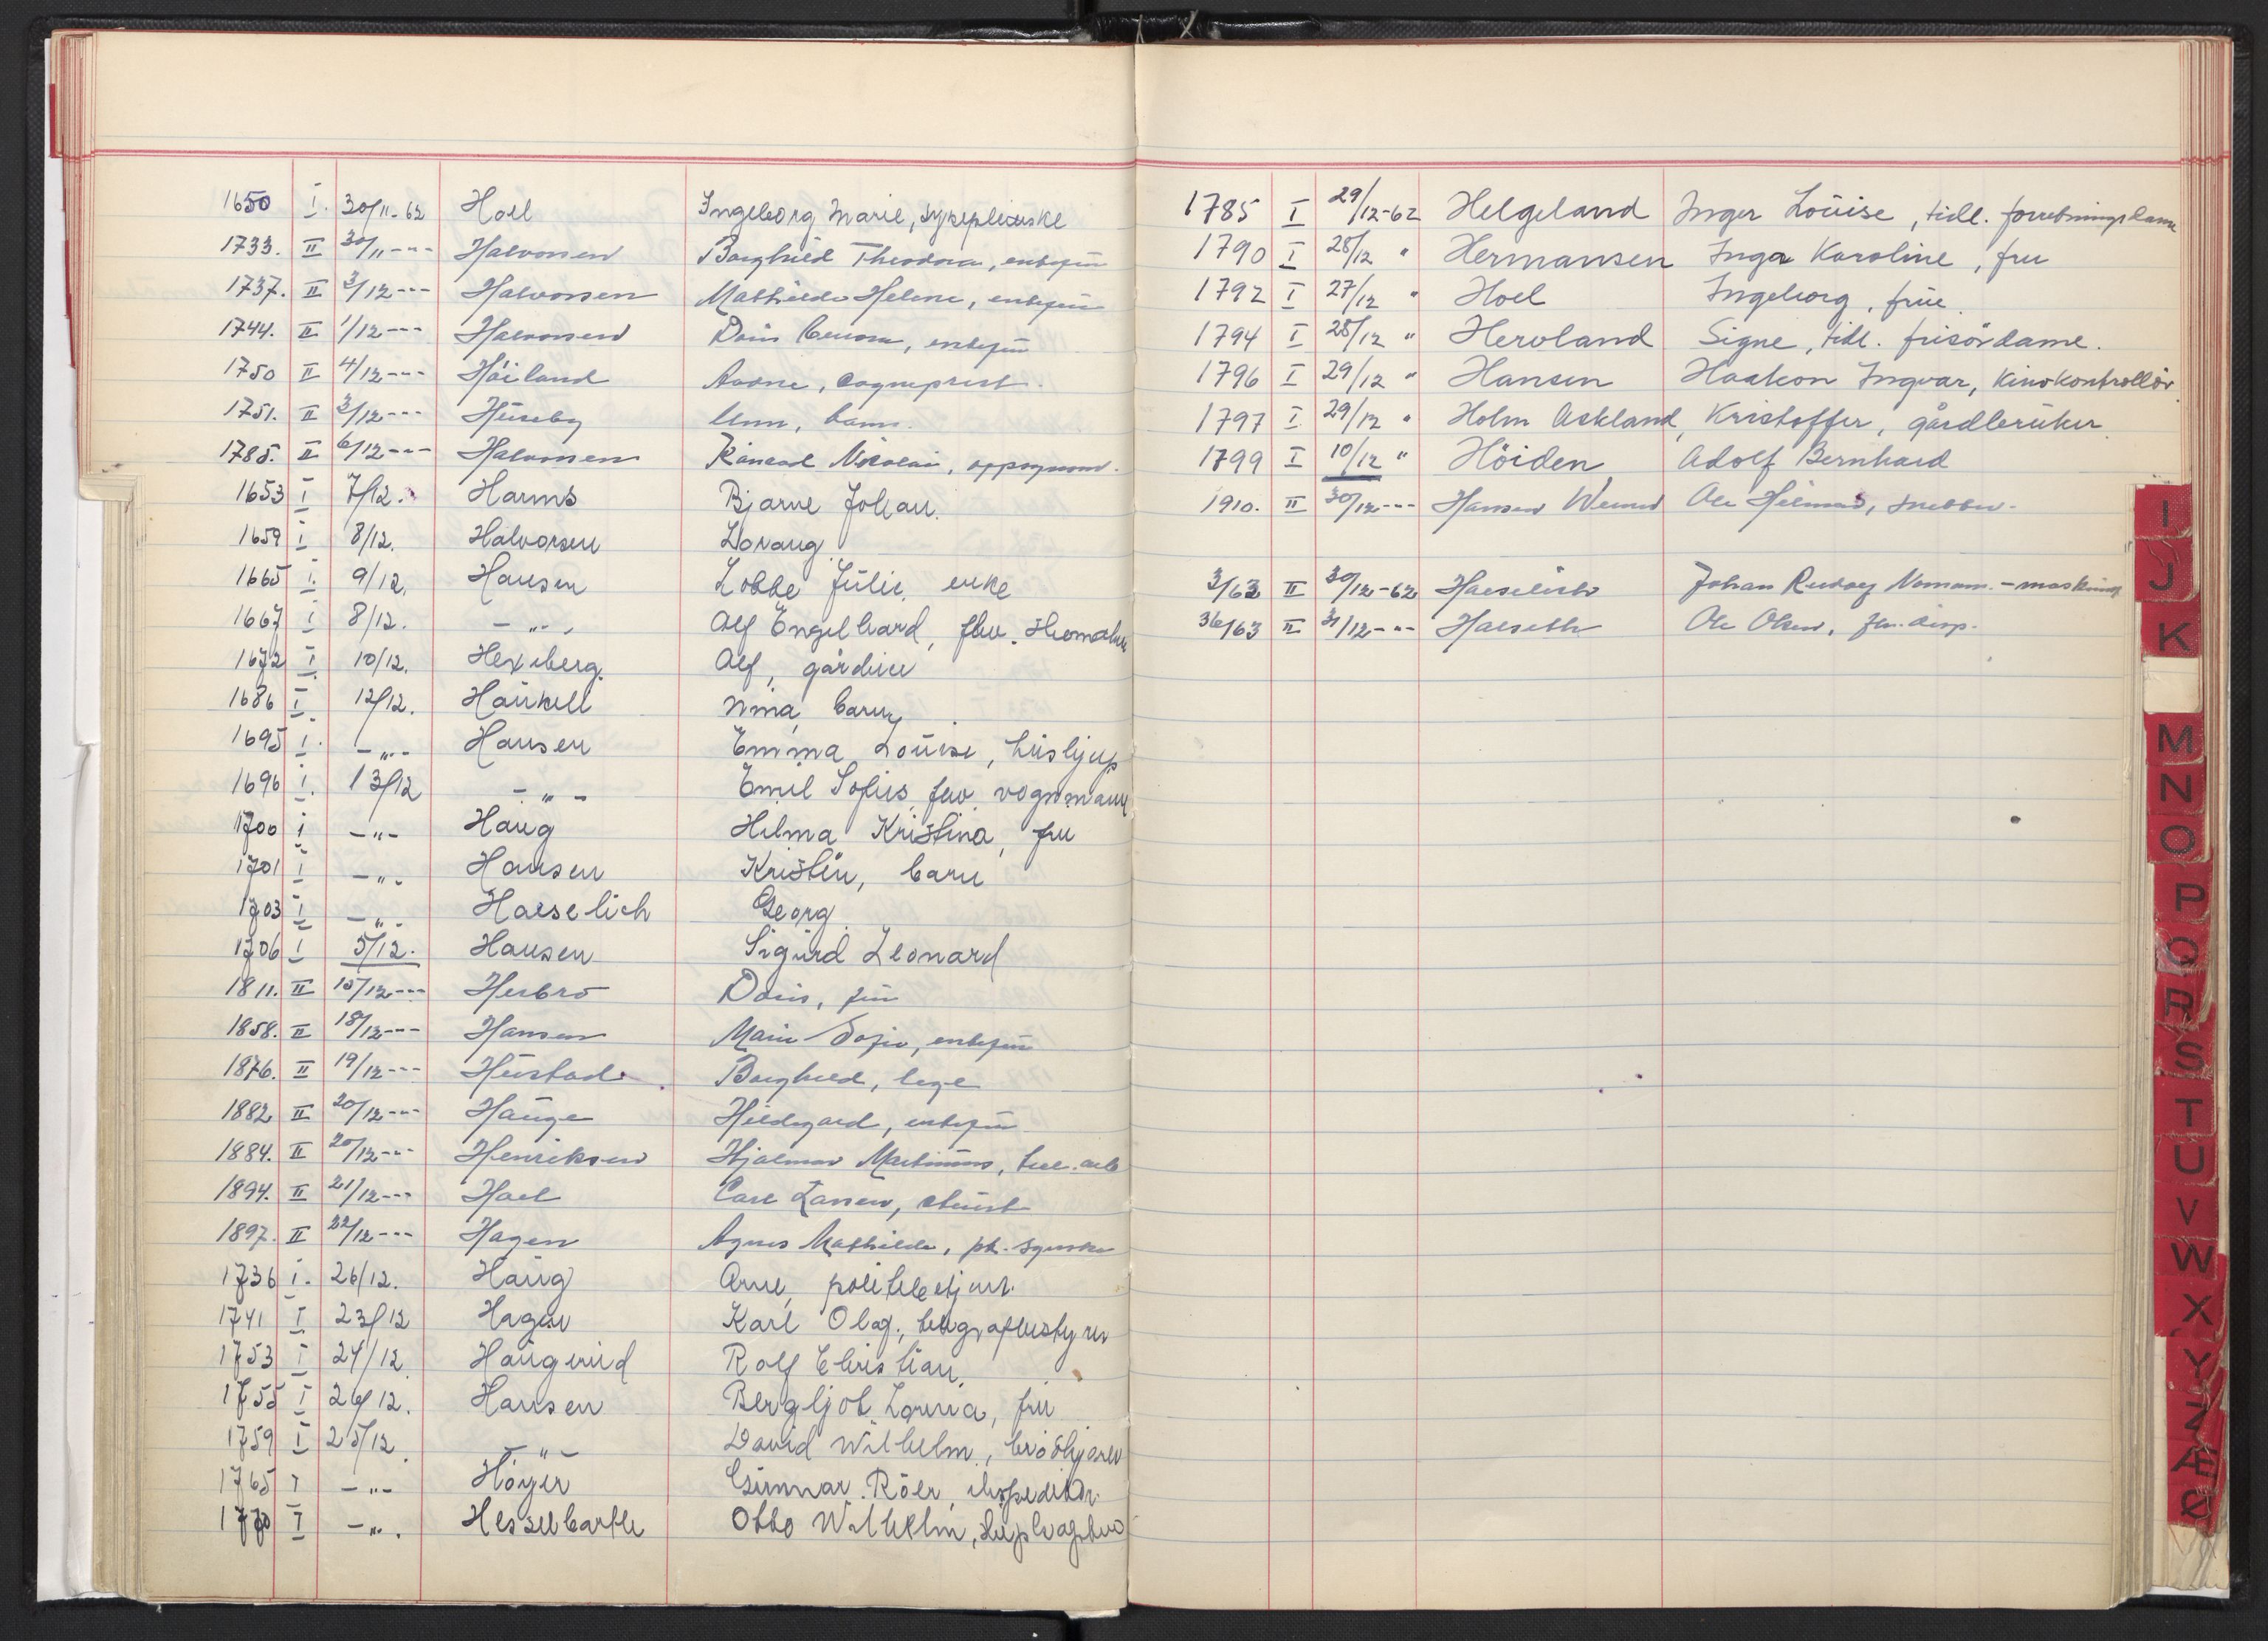 1650 I. 30/11-62 Hoel Ingeborg Marie, sykepleierske
1733. II 30/11 -"- Halvorsen Borghild Theodora, enkefru
1737. II 3/12 -"- Halvorsen Mathilde Helene, enkefru
1744. II 1/12 -"- Halvorsen enkefru
1750 II 4/12 -"- Höiland Aadne, sogneprest.
1751. II 3/12 -"- Huseby Unn, barn.
1785. II 6/12 -"- Halvorsen Nicolai, oppsynsm.
1653 I 7/12. Harms Bjarne Johan.
1659 I 8/12. Halvorsen Lovaug
1665 I. 9/12. Hansen Lobbe Julie, enke
1667 I 8/12. -"- Alf Engelhard, fhv.
1672 I 10/12. Hexeberg. Alf, gårdeier
1686 I 12/12. Haukell Nina, barn
1695 I. -"- Hansen Emma Louise, hushjelp
1696 I. 13/12 -"- Emil Sofus, fhv. vognmann
1700 I -"- Haug Hilma Kristina, fru
1701 I -"- Hansen Kristin, barn
1703 I -"- Haeselich Georg.
1706 I 5/12. Hansen Sigurd Leonard
1811. II 15/12 -"- Herbro Doris, fru
1858. II 18/12 -"- Hansen Marie Sofie, enkefru
1876. II 19/12 -"- Hustad Borghild, lege
1882 II 20/12 -"- Hauge Hildegard, enkefru
1884. II 20/12 -"- Henriksen Hjalmar Martinius,
1894. II 21/12 -"- Hoel Carl Larsen,
1897. II 22/12 -"- Hagen Agnes Mathilde, pk. syerske
1736 I. 26/12. Haug Arne, politibetjent.
1741 I 23/12 Hagen Karl Olaf, telegrafbestyrer
1753 I 24/12 Haugerud Rolf Christian.
1755 I 26/12. Hansen Bergljot Lovisa, fru
1759 I 25/12 -"- David Wilhelm,
1765 I -"- Höyer Gunnar Röer, ekspeditör.
1770 I -"- Hesselbarth Otto Wilhelm,
1785 I 29/12-62 Helgeland Inger Louise, tidl. forretningsdame
1790 I 28/12 " Hermansen Inga Karoline, fru
1792 I 27/12 " Hoel Ingeborg, frue
1794 I 28/12 " Hervland Signe, tidl. frisördame.
1796 I 29/12 " Hansen Haakon Ingvar, kinokontrollör.
1797 I 29/12 " Holm Askland, Kristoffer, gårdbruker
1799 I 10/12 " Höiden Adolf Bernhard
1910. II 30/12 -"- Hansen Ole Hilmar, snekker.
3/63 II 30/12-62 Haeselich Johan Rudolf
36/63 II 31/12 -"- Haeseth Ole Olsen, fhv. disp.
I
J
K
M
N
O
P
Q
R
S
T
U
V
W
X
Y
Z
Æ
Ø